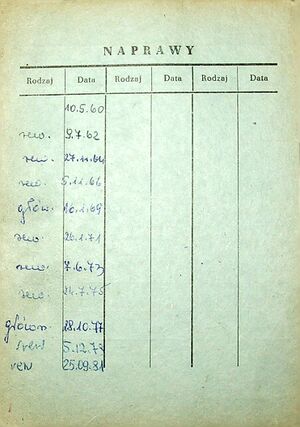 NAPRAWY
Rodzaj Data Rodzaj Data Rodzaj Data
10.5.60
rew. 9.7.62
rew. 27.11.64
rew. 5.11.66
głów. 16.1.69
rew. 26.1.71
rew. 7.6.73
rew. 24.7.75
główn. 28.10.77
rew 5.12.79
rew 25.09.81